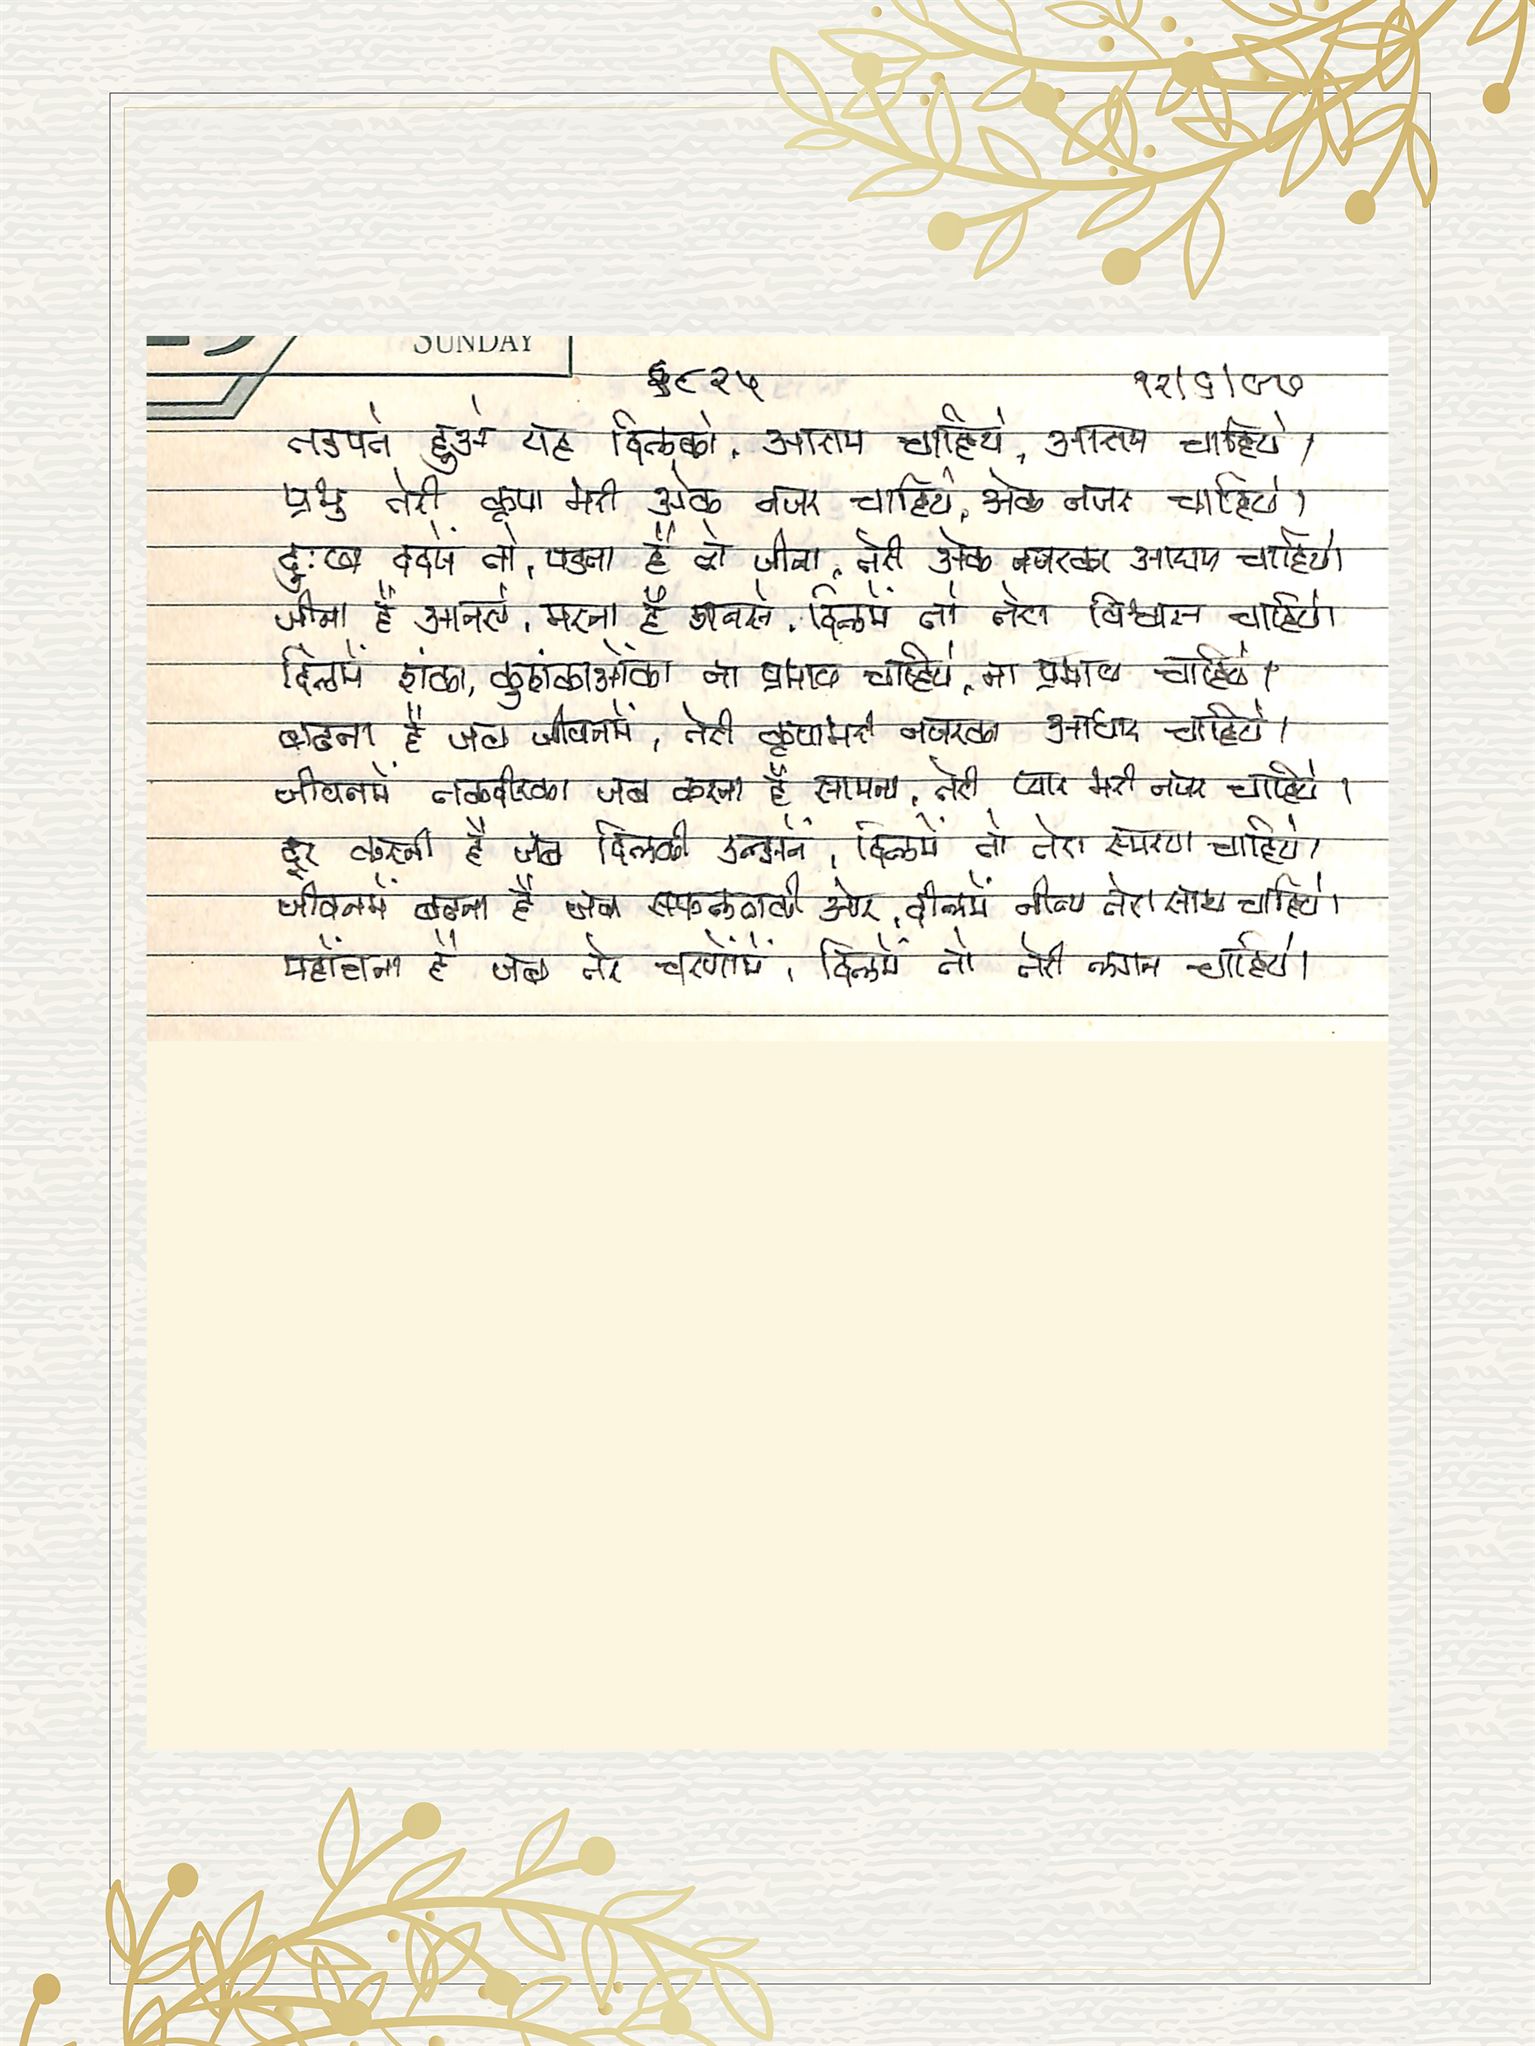 SUNDAY
६८२५ १२/६/८७
तडपते हुओ यह दिलको, आराम चाहिये, आराम चाहिये।
प्रभु तेरी कृपा भरी ओक नजर चाहिये, ओक नजर चाहिये।
दुःख दर्दमें तो, पडता है जीना, तेरी ओक नजरका आराम चाहिये।
जीना है मरना है दिलमें तो तेरा विश्वास चाहिये।
दिलमें शंका, कुशंकाओंका ना प्रभाव चाहिये, ना प्रभाव चाहिये।
बाढना है जब जीवनमें, तेरी कृपाभरी नजरका आधार चाहिये।
जीवनमें तकदीरका जब करना है सामना, तेरी प्यार भरी नजर चाहिये।
दूर करनी है जब दिलकी उलझनें, दिलमें तो तेरा स्मरण चाहिये।
जीवनमें बढना है जब सफलताकी ओर, दीलमें नीत्य तेरा साथ चाहिये।
पहोंचना है जब तेरे चरणोंमें, दिलमें तो तेरी लगन चाहिये।